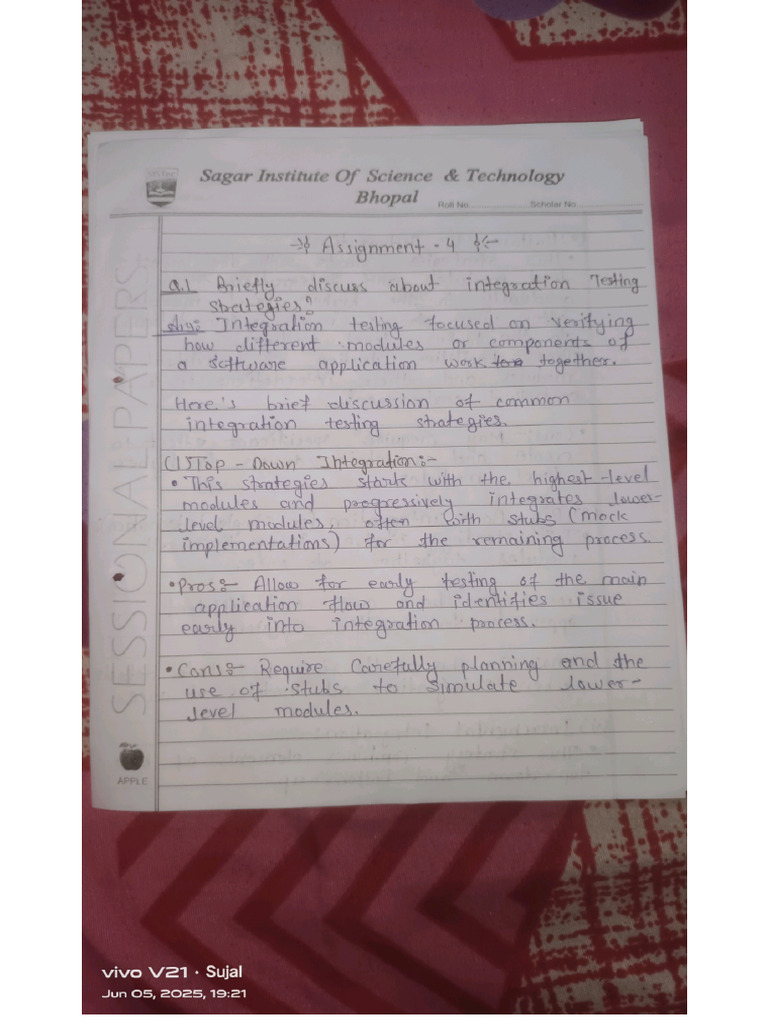 SISTec
Sagar Institute Of Science & Technology
Bhopal
Roll No.
Scholar No.
SESSIONAL PAPERS
Assignment - 4
Q.1 Briefly discuss about integration Testing
strategies?
Ans: Integration testing focused on verifying
how different modules or components of
a software application work together.
Here's brief discussion of common
integration testing strategies.
(1) Top - Down Integration:-
• This strategies starts with the highest-level
modules and progressively integrates lower-
level modules, often with stubs (mock
implementations) for the remaining process.
• Pros:- Allow for early testing of the main
application flow and identifies issue
early into integration process.
• Cons:- Require Carefully planning and the
use of stubs to simulate lower-
level modules.
APPLE
vivo V21 · Sujal
Jun 05, 2025, 19:21